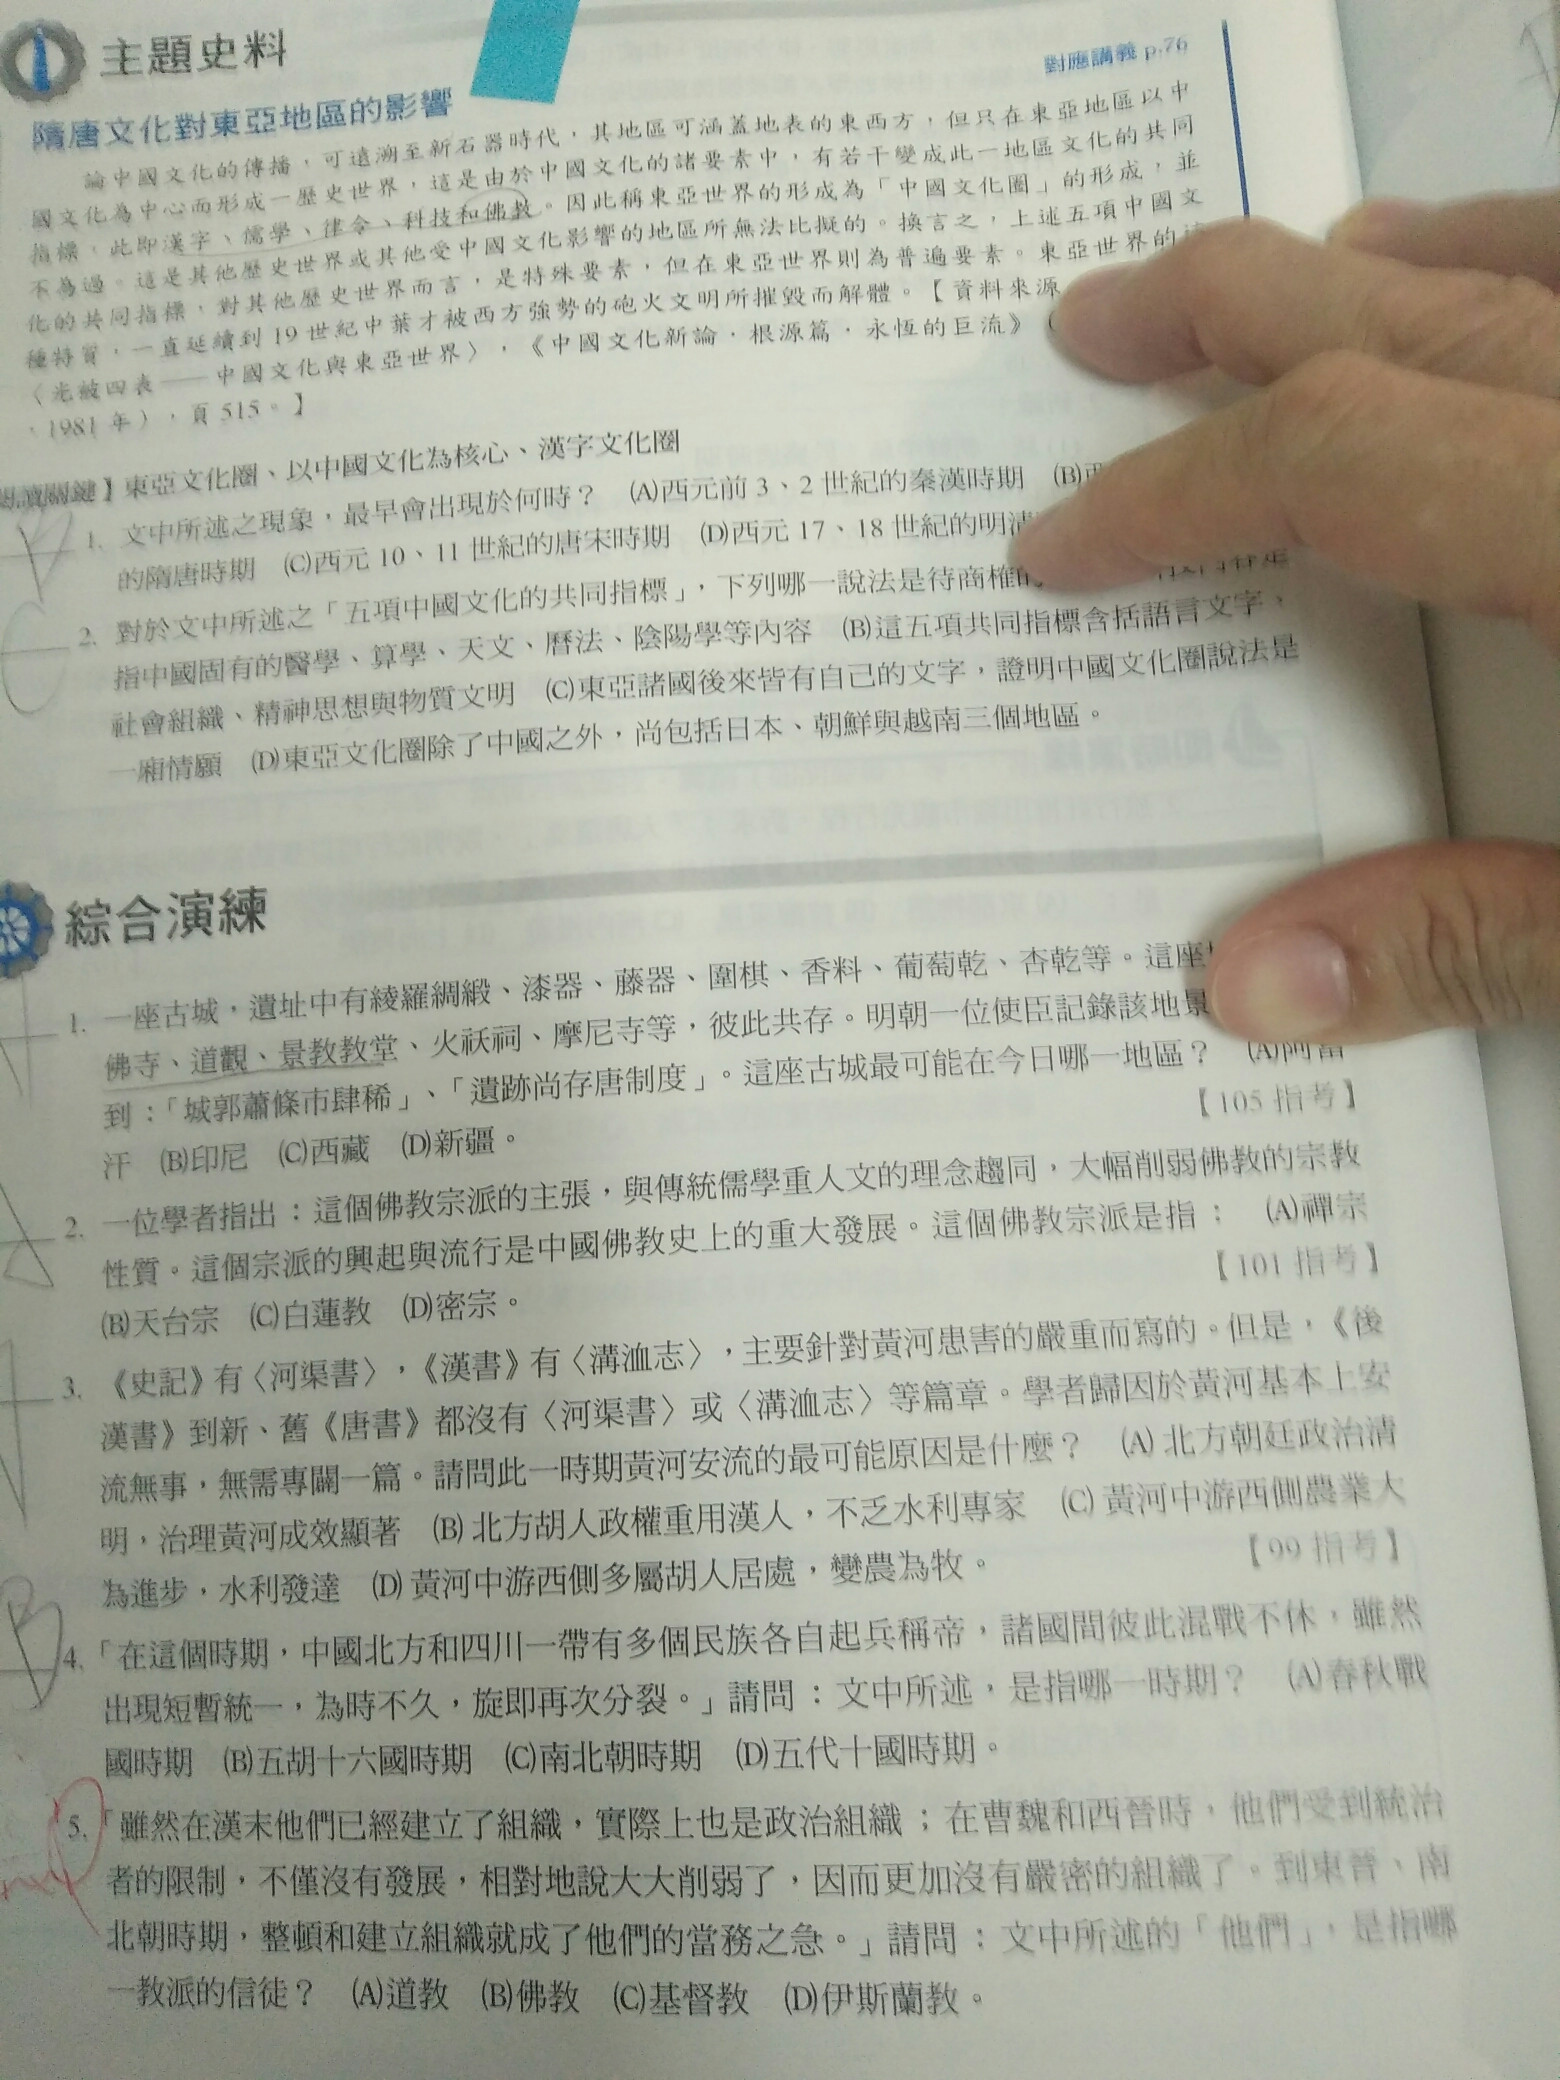 主題史料
對應講義 p.76
隋唐文化對東亞地區的影響
論中國文化的傳播，可遠溯至新石器時代，其地區可涵蓋地表的東西方，但只在東亞地區以中
國文化為中心而形成一歷史世界，這是由於中國文化的諸要素中，有若干變成此一地區文化的共同
指標，此即漢字、儒學、律令、科技和佛教。因此稱東亞世界的形成為「中國文化圈」的形成，並
不為過。這是其他歷史世界或其他受中國文化影響的地區所無法比擬的。換言之，上述五項中國文
化的共同指標，對其他歷史世界而言，是特殊要素，但在東亞世界則為普遍要素。東亞世界的
種特質，一直延續到19世紀中葉才被西方強勢的砲火文明所摧毀而解體。【資料來源
〈光被四表——中國文化與東亞世界〉，《中國文化新論．根源篇．永恆的巨流》
，1981年），頁515。】
閱讀關鍵】東亞文化圈、以中國文化為核心、漢字文化圈
1. 文中所述之現象，最早會出現於何時？ (A)西元前3、2世紀的秦漢時期 (B)
的隋唐時期 (C)西元10、11世紀的唐宋時期 (D)西元17、18世紀的明清
2. 對於文中所述之「五項中國文化的共同指標」，下列哪一說法是待商榷的
指中國固有的醫學、算學、天文、曆法、陰陽學等內容 (B)這五項共同指標含括語言文字、
社會組織、精神思想與物質文明 (C)東亞諸國後來皆有自己的文字，證明中國文化圈說法是
一廂情願 (D)東亞文化圈除了中國之外，尚包括日本、朝鮮與越南三個地區。
綜合演練
1. 一座古城，遺址中有綾羅綢緞、漆器、藤器、圍棋、香料、葡萄乾、杏乾等。這座
佛寺、道觀、景教教堂、火祆祠、摩尼寺等，彼此共存。明朝一位使臣記錄該地景
到：「城郭蕭條市肆稀」、「遺跡尚存唐制度」。這座古城最可能在今日哪一地區？ (A)阿富
汗 (B)印尼 (C)西藏 (D)新疆。 【105指考】
2. 一位學者指出：這個佛教宗派的主張，與傳統儒學重人文的理念趨同，大幅削弱佛教的宗教
性質。這個宗派的興起與流行是中國佛教史上的重大發展。這個佛教宗派是指： (A)禪宗
(B)天台宗 (C)白蓮教 (D)密宗。 【101指考】
3. 《史記》有〈河渠書〉，《漢書》有〈溝洫志〉，主要針對黃河患害的嚴重而寫的。但是，《後
漢書》到新、舊《唐書》都沒有〈河渠書〉或〈溝洫志〉等篇章。學者歸因於黃河基本上安
流無事，無需專闢一篇。請問此一時期黃河安流的最可能原因是什麼？ (A)北方朝廷政治清
明，治理黃河成效顯著 (B)北方胡人政權重用漢人，不乏水利專家 (C)黃河中游西側農業大
為進步，水利發達 (D)黃河中游西側多屬胡人居處，變農為牧。 【99指考】
B
4. 「在這個時期，中國北方和四川一帶有多個民族各自起兵稱帝，諸國間彼此混戰不休，雖然
出現短暫統一，為時不久，旋即再次分裂。」請問：文中所述，是指哪一時期？ (A)春秋戰
國時期 (B)五胡十六國時期 (C)南北朝時期 (D)五代十國時期。
5. 「雖然在漢末他們已經建立了組織，實際上也是政治組織；在曹魏和西晉時，他們受到統治
者的限制，不僅沒有發展，相對地說大大削弱了，因而更加沒有嚴密的組織了。到東晉、南
北朝時期，整頓和建立組織就成了他們的當務之急。」請問：文中所述的「他們」，是指哪
一教派的信徒？ (A)道教 (B)佛教 (C)基督教 (D)伊斯蘭教。